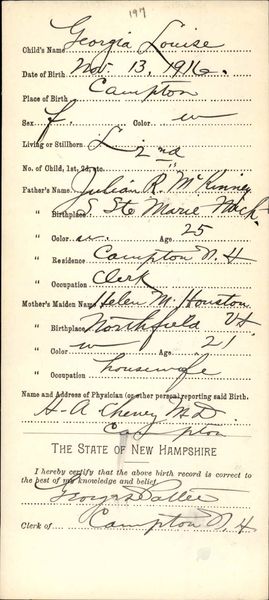 197
Child's Name Georgia Louise
Date of Birth Nov 13, 1916.
Place of Birth Campton
Sex f Color w
Living or Stillborn L
No. of Child, 1st, 2d, etc. 2nd
Father's Name Julian R. McKinney
" Birthplace S Ste Marie Mich.
" Color w. Age 25
" Residence Campton N. H
" Occupation Clerk
Mother's Maiden Name Helen M. Houston
" Birthplace Northfield Vt.
" Color w Age 21
" Occupation housewife
Name and Address of Physician (or other person) reporting said Birth.
H- A Cheney M.D
Campton
THE STATE OF NEW HAMPSHIRE
I hereby certify that the above birth record is correct to
the best of my knowledge and belief.
Pattee
Clerk of Campton N. H